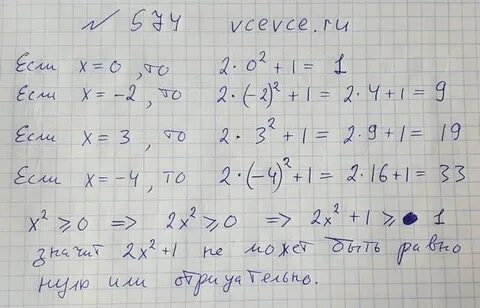 № 574 vcevce.ru
Если x = 0, то 2·0² + 1 = 1
Если x = -2, то 2·(-2)² + 1 = 2·4+1 = 9
Если x = 3, то 2·3² + 1 = 2·9+1 = 19
Если x = -4, то 2·(-4)² + 1 = 2·16+1 = 33
x² ⩾ 0 ⇒ 2x² ⩾ 0 ⇒ 2x² + 1 ⩾ 1
значит 2x²+1 не может быть равно
нулю или отрицательно.